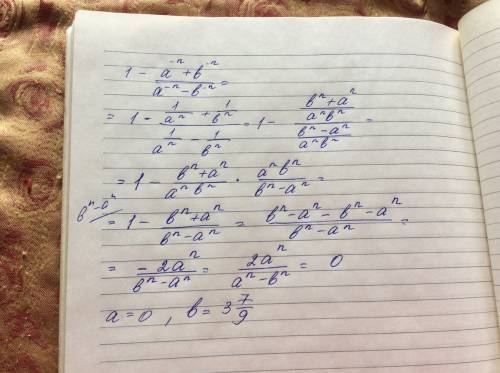 1 - (a⁻ⁿ + b⁻ⁿ)/(a⁻ⁿ - b⁻ⁿ) =
= 1 - (1/aⁿ + 1/bⁿ)/(1/aⁿ - 1/bⁿ) = 1 - ((bⁿ + aⁿ)/(aⁿbⁿ))/((bⁿ - aⁿ)/(aⁿbⁿ)) =
= 1 - (bⁿ + aⁿ)/(aⁿbⁿ) · (aⁿbⁿ)/(bⁿ - aⁿ) =
bⁿ - aⁿ/ = 1 - (bⁿ + aⁿ)/(bⁿ - aⁿ) = (bⁿ - aⁿ - bⁿ - aⁿ)/(bⁿ - aⁿ) =
= (-2aⁿ)/(bⁿ - aⁿ) = (2aⁿ)/(aⁿ - bⁿ) = 0
a = 0, b = 3 7/9